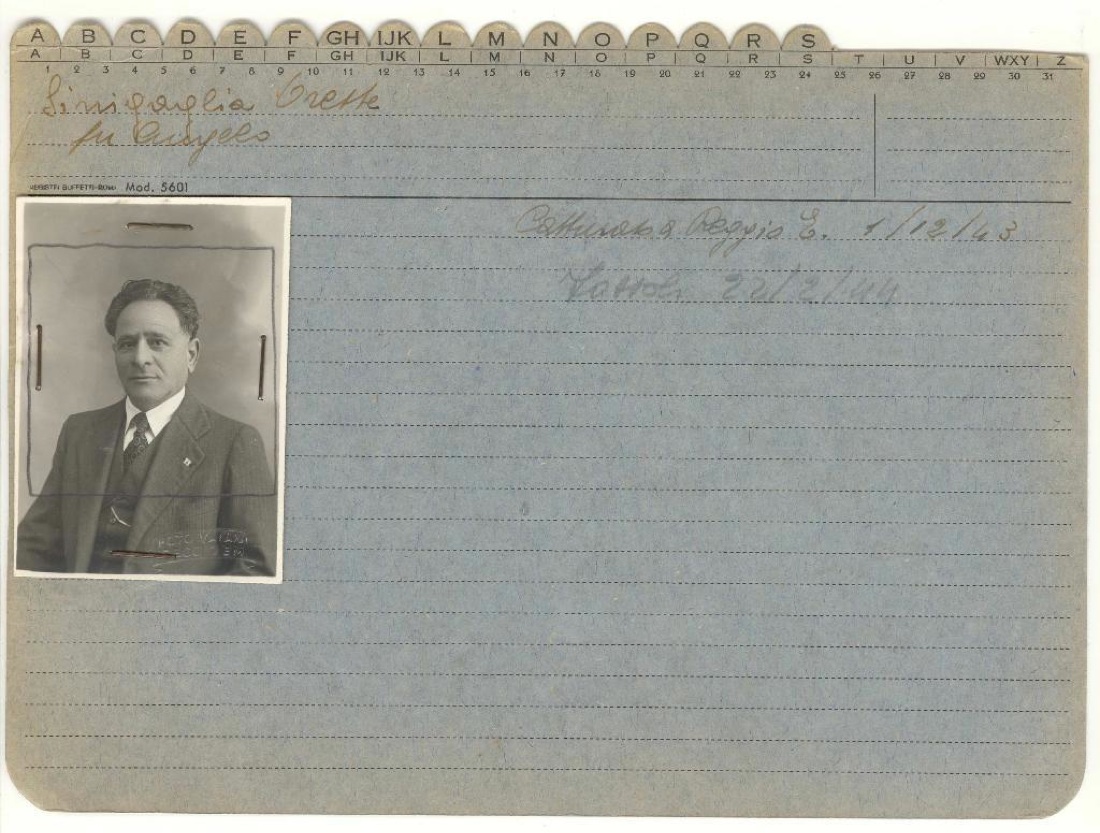 A B C D E F GH IJK L M N O P Q R S
A B C D E F GH IJK L M N O P Q R S T U V WXY Z
1 2 3 4 5 6 7 8 9 10 11 12 13 14 15 16 17 18 19 20 21 22 23 24 25 26 27 28 29 30 31
Sinigaglia Oreste
fu Angelo
BUFFETTI-ROMA Mod. 5601
Catturato a Reggio E. 1/12/43
Fossoli 22/2/44
FOTO